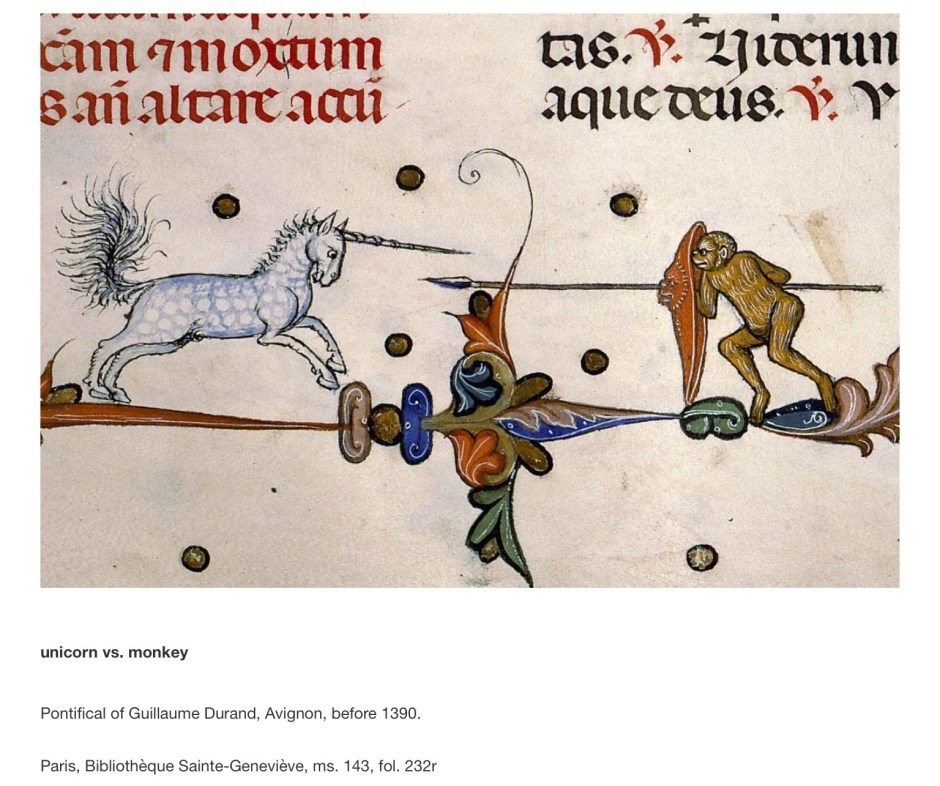 cām ⁊ mortuum
s an̄ altare accū
tas. ℣. Viderun
aque deus. ℣. V
unicorn vs. monkey
Pontifical of Guillaume Durand, Avignon, before 1390.
Paris, Bibliothèque Sainte-Geneviève, ms. 143, fol. 232r